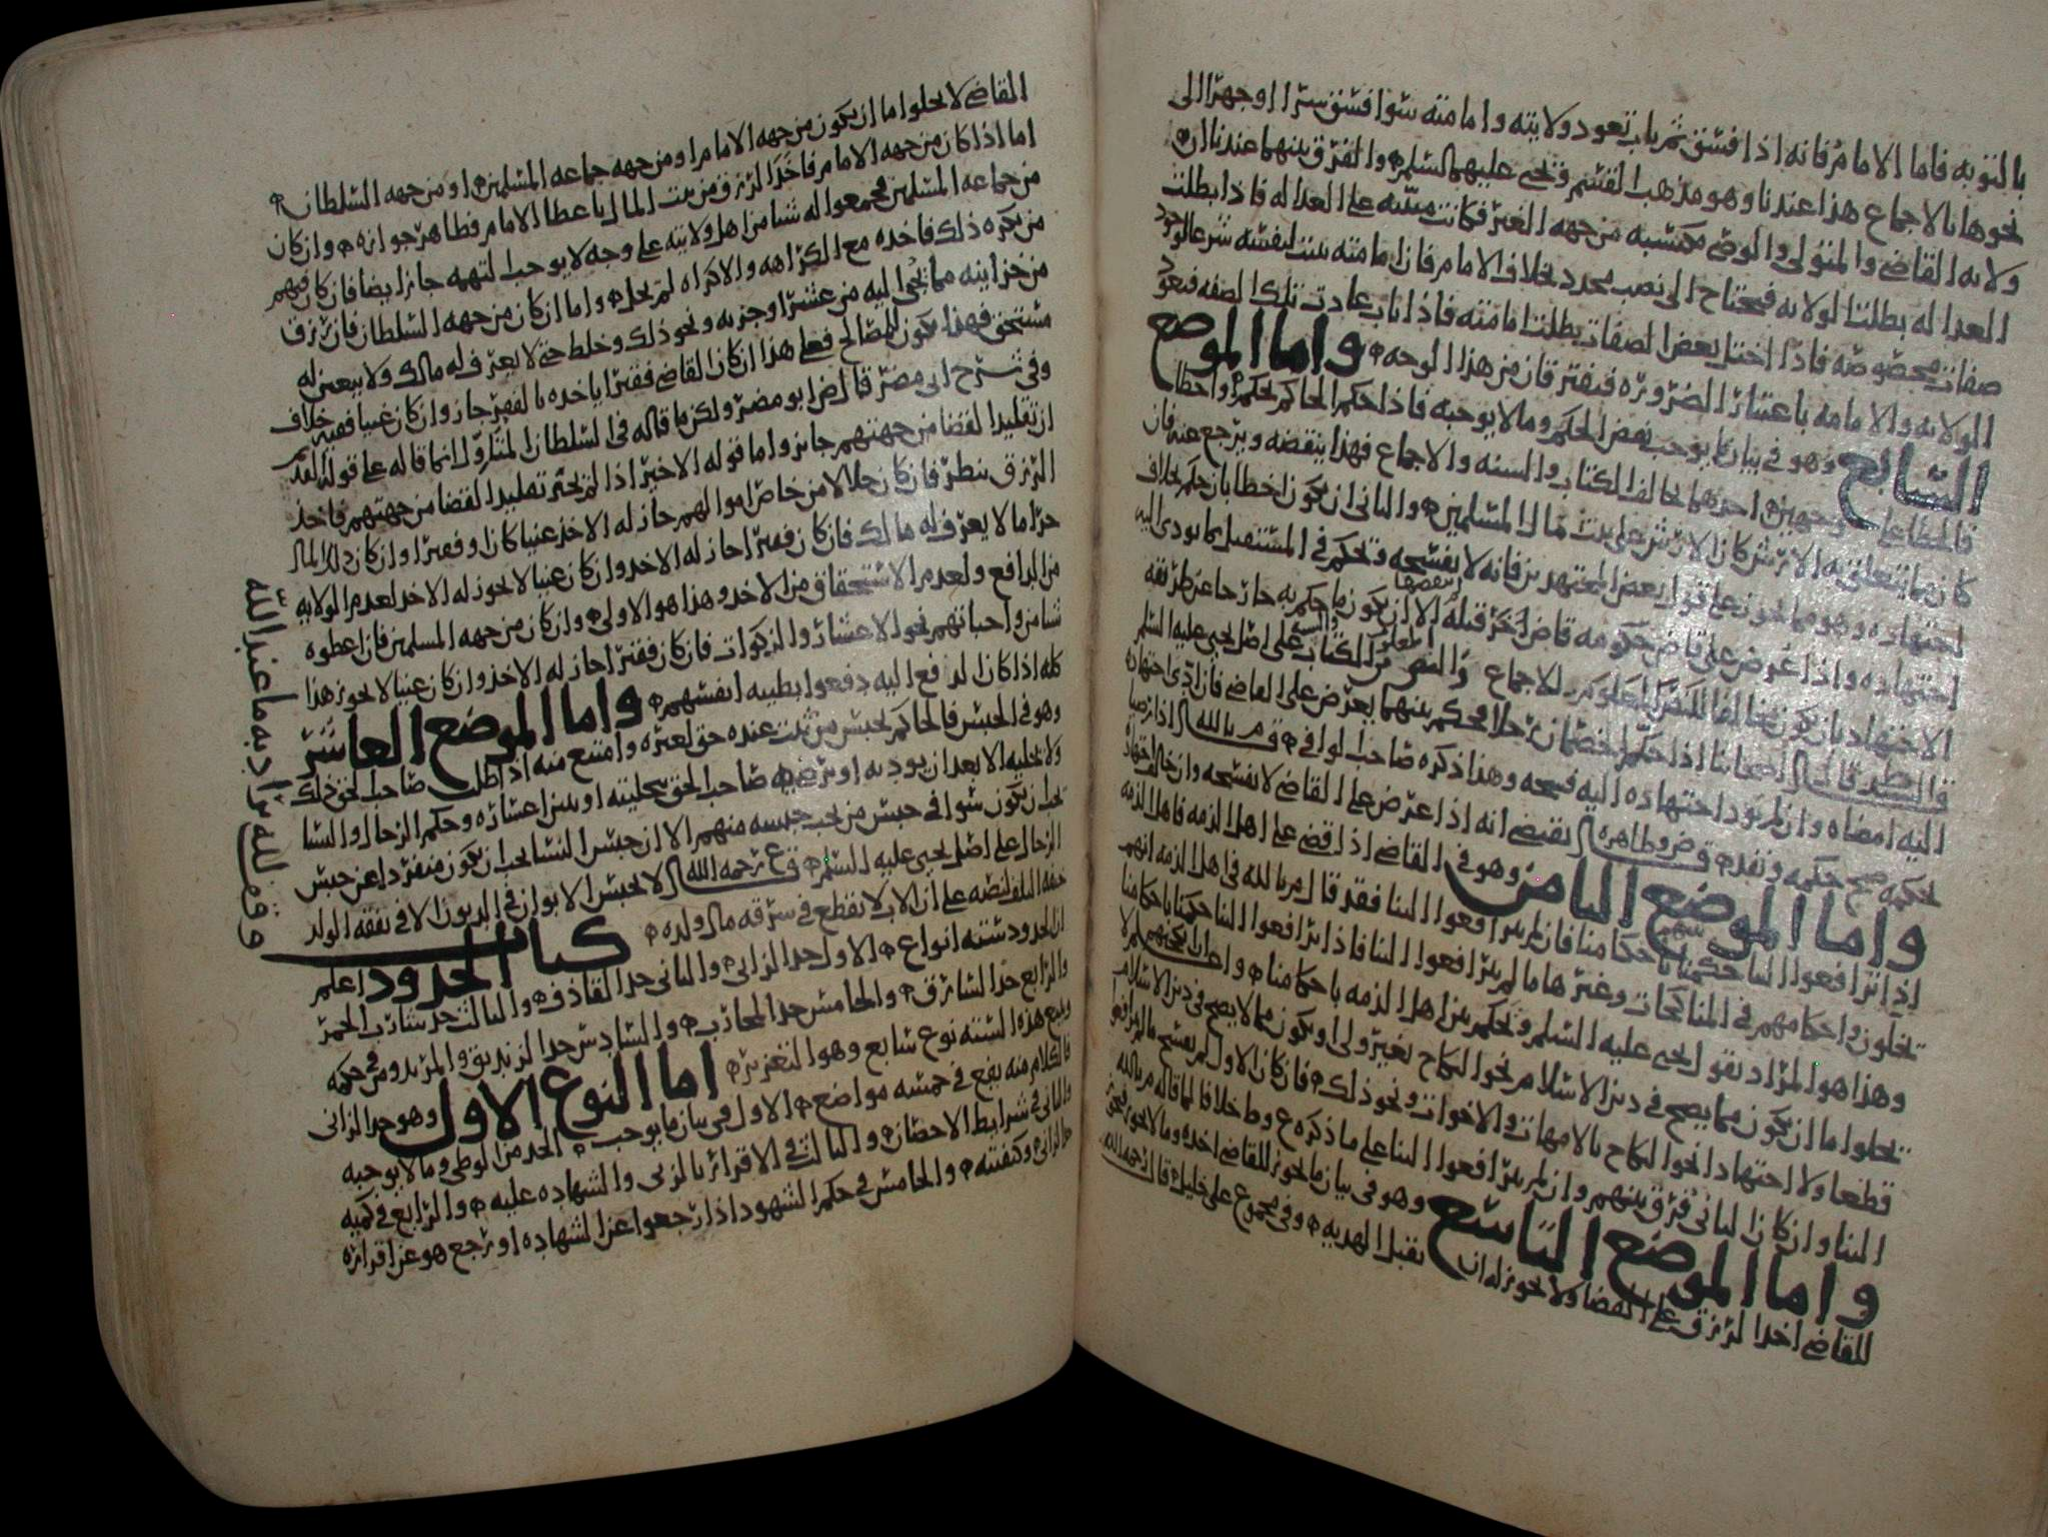 بالتوبه فاما الامام فانه اذا فسق ثم تاب تعود ولايته وامامته سوا فسق سرا او جهرا الى
نحوها بالاجماع هذا عندنا وهو مذهب القسم ويحيى عليهما السلم والفرق بينهما عندنا ان
ولايه القاضي والمتولي والوصي مكتسبه من جهه الغير فكانت مبنيه على العداله فاذا بطلت
العداله بطلت الولايه فيحتاج الى نصب مجدد بخلاف الامام فان امامته تثبت لنفسه شرعا لوجود
صفات مخصوصه فاذا اختل بعض الصفات بطلت امامته فاذا تاب عادت تلك الصفه فتعود
الولايه والامامه باعتبار الضروره فيفترقان من هذا الوجه واما الموضع
السابع وهو في بيان ما يوجب نقض الحكم وما لا يوجبه فاذا حكم الحاكم بحكم واخطا
فالخطا على وجهين احدهما يخالف الكتاب والسنه والاجماع فهذا ينقضه ويرجع عنه فان
كان مما يتعلق به الارش كان الارش على بيت مال المسلمين والثاني ان يكون اخطا بان حكم بخلاف
اجتهاده وهو مما يجوز على قول بعض المجتهدين فانه لا يفسخه ويحكم في المستقبل بما يودي اليه
اجتهاده واذا عرض على قاض حكومه قاض اخر قبله الا ان يكون ما حكم به خارجا عن طريقه
الاجتهاد بان يكون مخالفا للاجماع والنص من الكتاب على اصل يحيى عليه السلم
قال اصحابنا اذا حكم الخصمان رجلا فحكم بينهما يعرض على القاضي فان ادى اجتهاده
اليه امضاه وان لم يود اجتهاده اليه فسخه وهذا ذكره صاحب الوافي قال م بالله اذا ترضيا
بحكمه صح حكمه ونفذ وظاهره يقتضي انه اذا عرض على القاضي لا يفسخه وان خالف اجتهاده
واما الموضع الثامن وهو في القاضي اذا قضى على اهل الذمه فاهل الذمه
اذا ترافعوا الينا حكمنا بينهم باحكامنا فان لم يترافعوا الينا فقد قال م بالله في اهل الذمه انهم
يخلون واحكامهم في المناكحات وغيرها ما لم يترافعوا الينا فاذا ترافعوا الينا حكمنا باحكامنا
وهذا هو المراد بقول يحيى عليه السلم ويحكم بين اهل الذمه باحكامنا واعلم ان نكحتهم لا
يخلوا اما ان يكون مما يصح في دين الاسلام نحو النكاح بغير ولي او يكون مما لا يصح في دين الاسلام
قطعا ولا اجتهادا نحو النكاح بالامهات والاخوات ونحو ذلك فان كان الاول لم يفسخ ما لم يترافعوا
الينا وان كان الثاني فرق بينهم وان لم يترافعوا الينا على ما ذكره ع وط خلافا لما قاله م بالله
واما الموضع التاسع وهو في بيان ما يجوز للقاضي اخذه وما لا يجوز فيجوز
للقاضي اخذ الرزق على القضا ولا يجوز له ان يقبل الهديه وفي مجموع علي خليل قال رحمه الله
القاضي لا يخلوا اما ان يكون من جهه الامام او من جهه جماعه المسلمين او من جهه السلطان
اما اذا كان من جهه الامام فاخذ الرزق من بيت المال باعطا الامام فظاهر جوازه وان كان
من جماعه المسلمين فجمعوا له شيا من اهل ولايته على وجه لا يوجب التهمه جاز ايضا فان كان فيهم
من يكره ذلك فاخذه مع الكراهه والاكراه لم يحل واما ان كان من جهه السلطان فان رزق
من خزاينه مما يجبى اليه من عشر او جزيه ونحو ذلك وخلط حتى لا يعرف له مالك ولا يتعين له
مستحق فهذا يكون للمصالح فعلى هذا ان كان القاضي فقيرا ياخذه بالفقر جاز وان كان غنيا ففيه خلاف
وفي شرح ابي مضر قال ض ابو مضر ولكن ما قاله في السلطان المتاول انما قاله على قوله القديم
ان تقليد القضا من جهتهم جايز واما قوله الاخير اذا لم يجز تقليد القضا من جهتهم فاخذ
الرزق ينظر فان كان حلالا من خاص اموالهم جاز له الاخذ غنيا كان او فقيرا وان كان ذلك المال
حراما لا يعرف له مالك فان كان فقيرا جاز له الاخذ وان كان غنيا لا يجوز له الاخذ لعدم الولايه
من الدافع ولعدم الاستحقاق من الاخذ وهذا هو الاولى وان كان من جهه المسلمين فان اعطوه
شيا من واجباتهم نحو الاعشار والزكوات فان كان فقيرا جاز له الاخذ وان كان غنيا لا يجوز هذا
كله اذا كان الدفع اليه دفعوا بطيبه انفسهم واما الموضع العاشر
وهو في الحبس فالحاكم يحبس من ثبت عنده حق لغيره وامتنع منه اذا طلب صاحب الحق ذلك
ولا يخليه الا بعد ان يوديه او يرضى صاحب الحق بتخليته او يتبين اعساره وحكم الرجال والنسا
يجب ان يكون سوا في حبس من يجب حبسه منهم الا ان حبس النسا يجب ان يكون منفردا عن حبس
الرجال على اصل يحيى عليه السلم قال ع رحمه الله لا يحبس الابوان في الديون الا في نفقه الولد
لنصه على ان الاب لا يقطع في سرقه مال ولده كتاب الحدود اعلم
ان الحدود سته انواع الاول حد الزاني والثاني حد القاذف والثالث حد شارب الخمر
والرابع حد السارق والخامس حد المحارب والسادس حد الزنديق والمرتد ومن في حكمه
ويتبع هذه السته نوع سابع وهو التعزير اما النوع الاول وهو حد الزاني
فالكلام منه يقع في خمسه مواضع الاول في بيان ما يوجب الحد من الوطي وما لا يوجبه
والثاني في شرايط الاحصان والثالث في الاقرار بالزنى والشهاده عليه والرابع في كميه
حد الزاني وكيفيته والخامس في حكم الشهود اذا رجعوا عن الشهاده او رجع هو عن اقراره
وقف لله يراد به ما عند الله